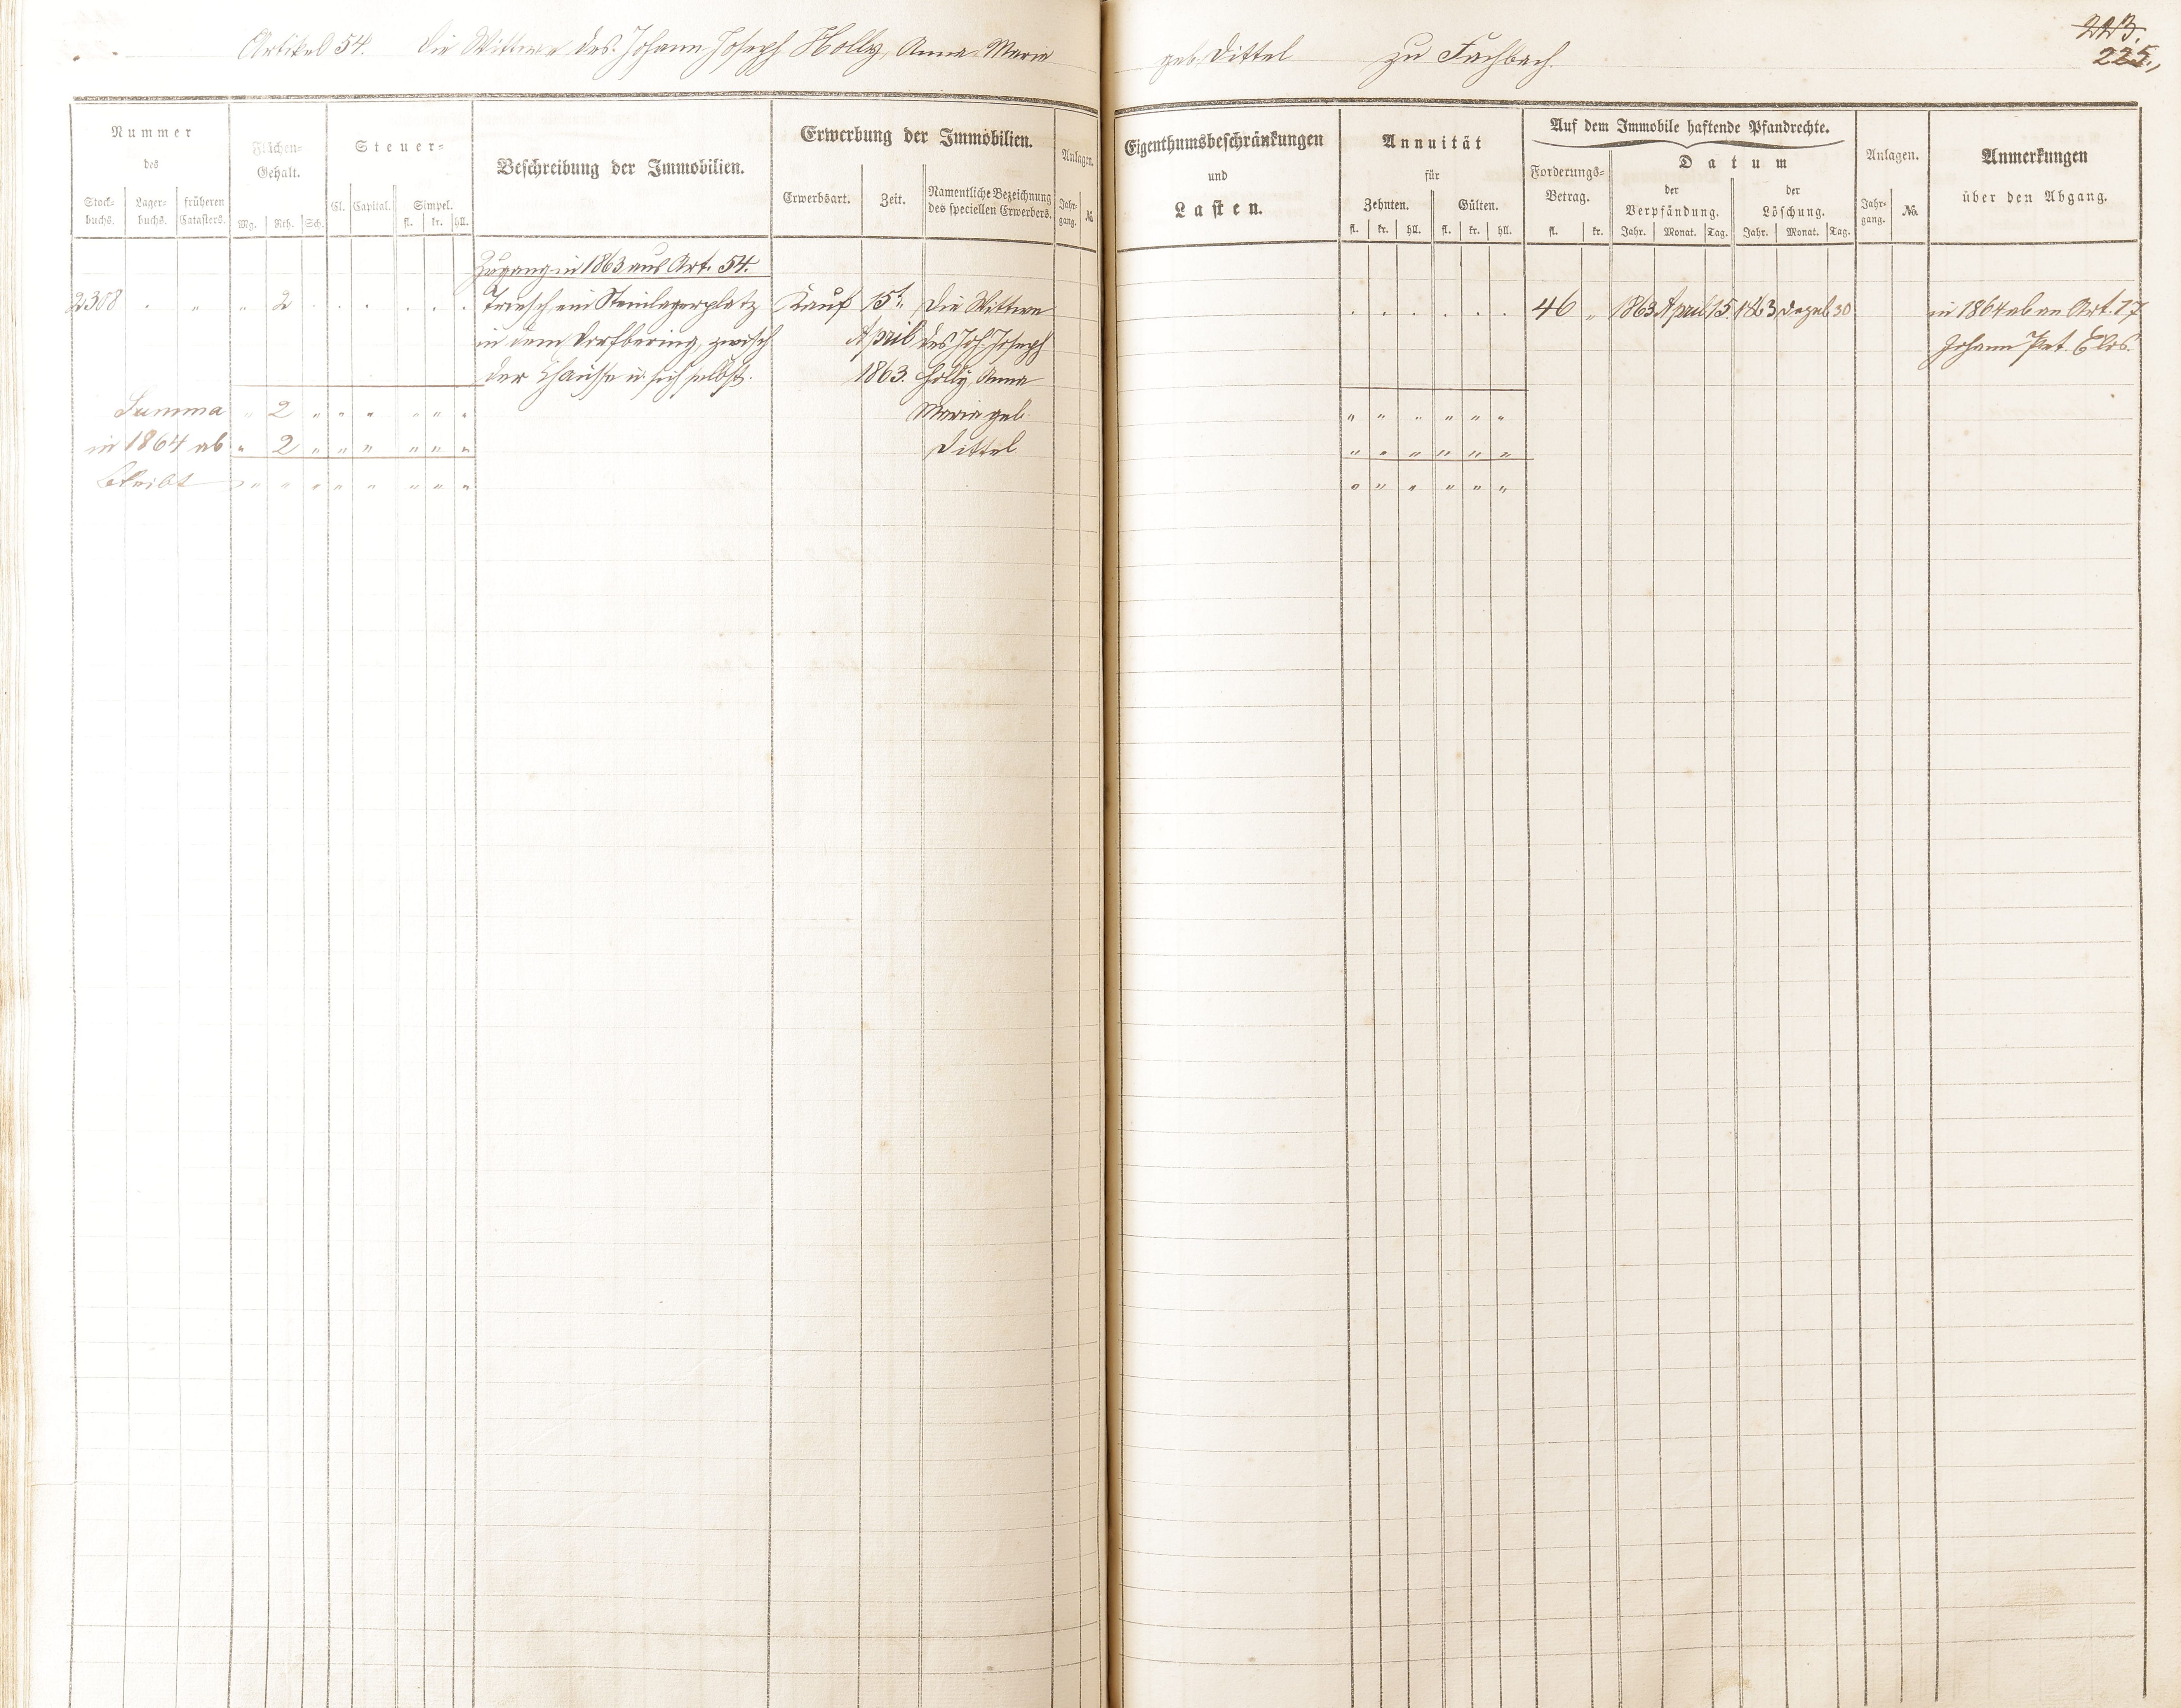 Artikel 54. Die Wittwe des Johann Joseph Holly, Anna Maria geb. Dittel zu Fachbach.
223.
225.
Nummer
des
Stock-
buchs.
Lager-
buchs.
früheren
Catasters.
Flächen-
Gehalt.
Mg. Rth. Sch.
Steuer-
Cl. Capital. Simpel.
fl. kr. hll.
Beschreibung der Immobilien.
Erwerbung der Immobilien.
Erwerbsart. Zeit. Namentliche Bezeichnung
des speciellen Erwerbers.
Anlagen.
Jahr-
gang. №
Eigenthumsbeschränkungen
und
Lasten.
Annuität
für
Zehnten. Gülten.
fl. kr. hll. fl. kr. hll.
Auf dem Immobile haftende Pfandrechte.
Forderungs-
Betrag.
fl. kr.
Datum
der
Verpfändung.
Jahr. Monat. Tag.
der
Löschung.
Jahr. Monat. Tag.
Anlagen.
Jahr-
gang. No.
Anmerkungen
über den Abgang.
Zugang in 1863 aus Art. 54.
2308 . " " 2 . . . . . . Triesch ein Steinlagerplatz Kauf 15t. Die Wittwe . . . . . . 46 " 1863 April 15. 1863 Dezbr 30 in 1864 ab an Art. 17
in dem Dorfbering, zwisch April des Joh. Joseph Johann Pet.
der Chausse u. sich selbst. 1863. Holly, Anna
Summa " 2 " " " " " " Maria geb. " " " " " "
in 1864 ab " 2 " " " " " " Dittel " " " " " "
bleibt " " " " " " " " " " " " " "